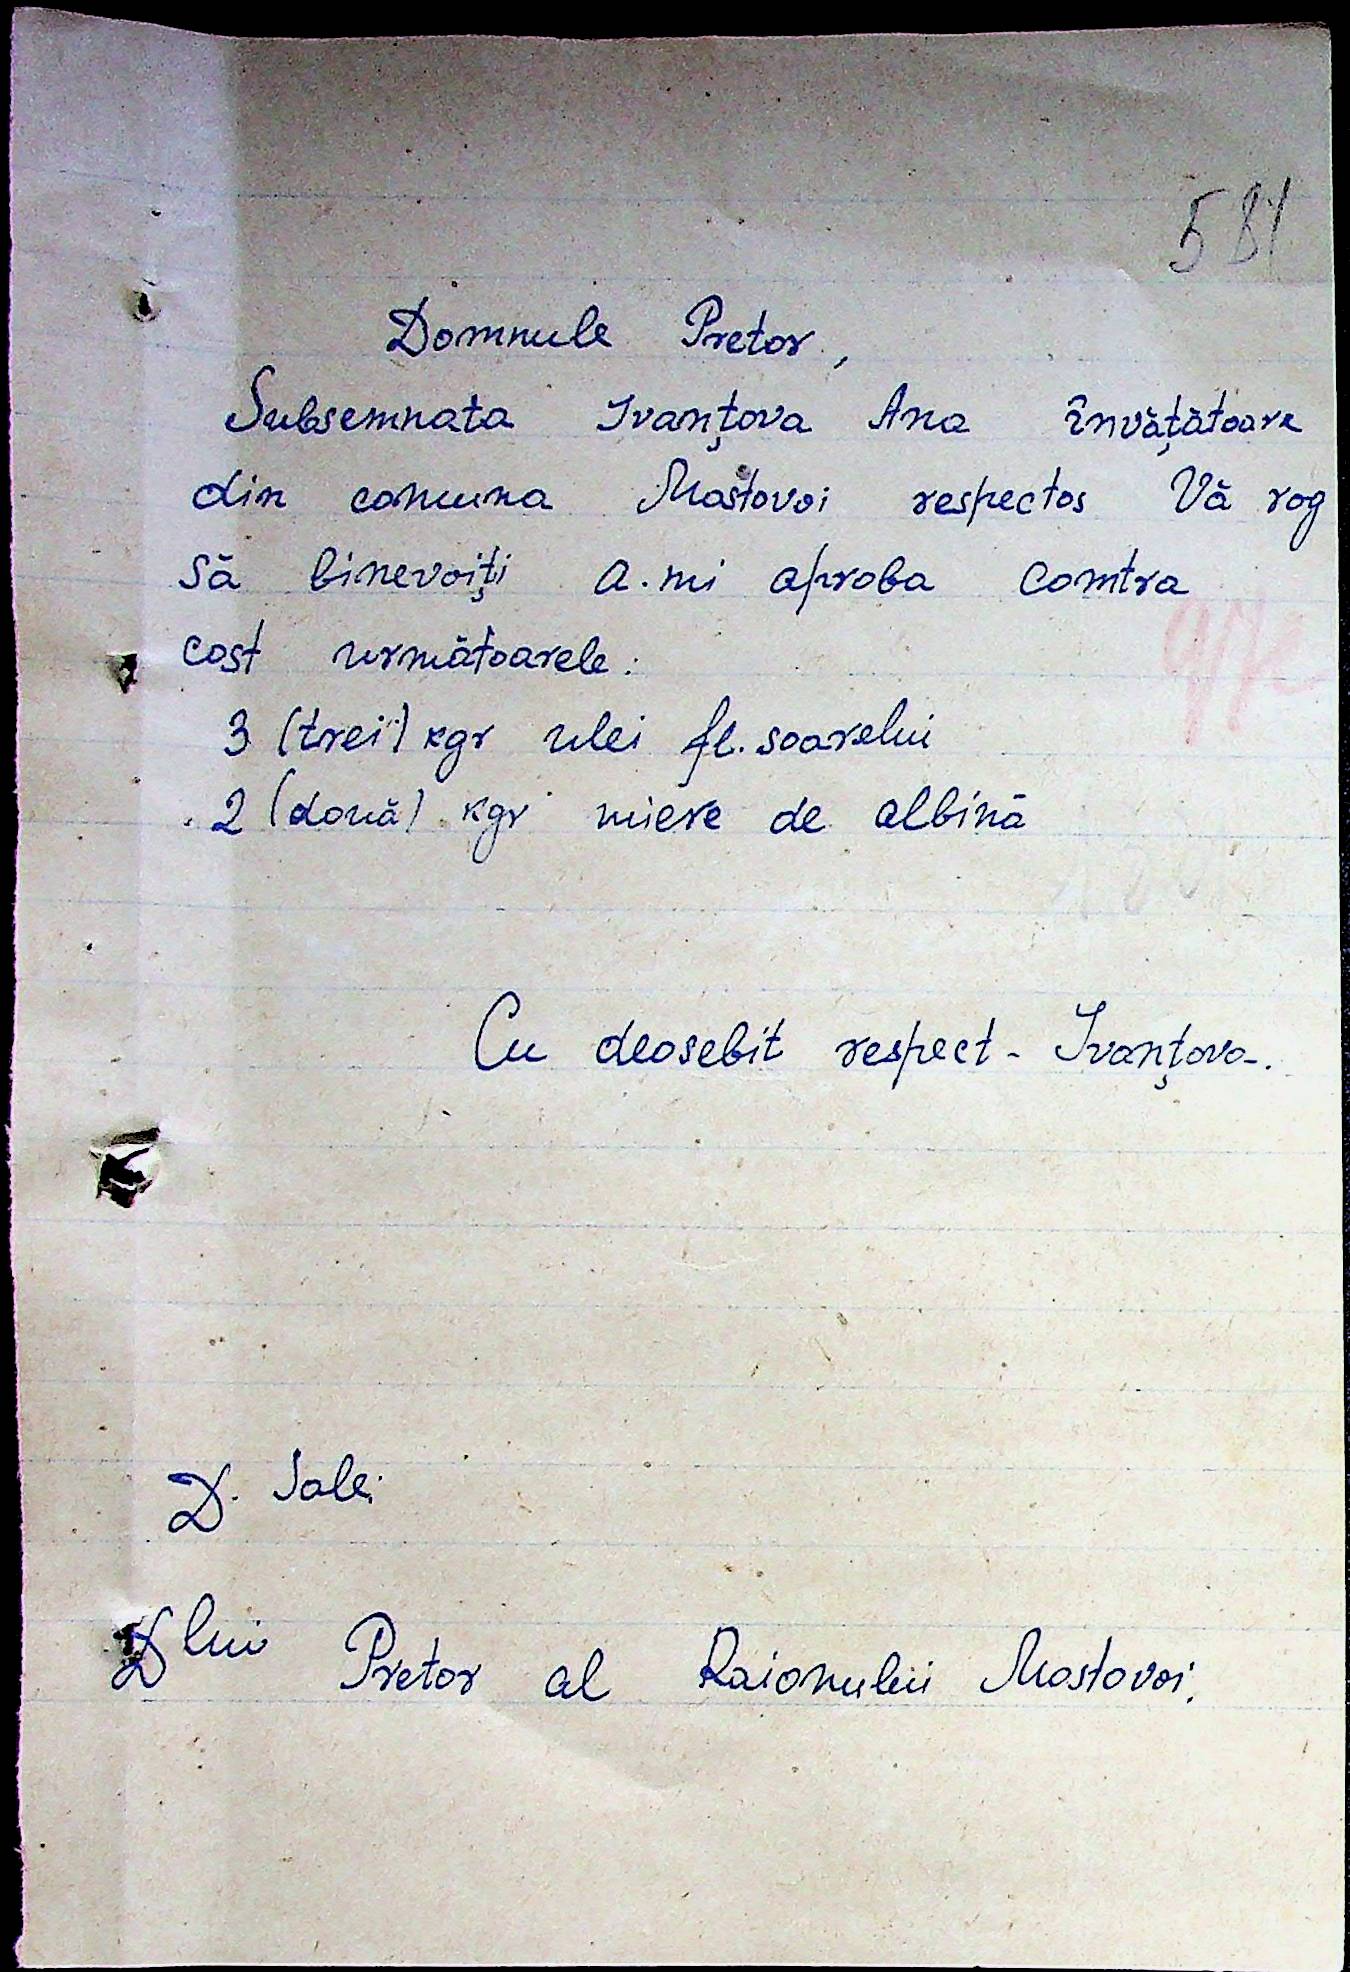 581
Domnule Pretor,
Subsemnata Ivanțova Ana învățătoare
din comuna Mostovoi respectos Vă rog
să binevoiți a-mi aproba comtra
cost următoarele:
3 (trei) kgr ulei fl. soarelui
2 (două) kgr miere de albină
Cu deosebit respect - Ivanțova.
D. Sale:
Dlui Pretor al Raionului Mostovoi.